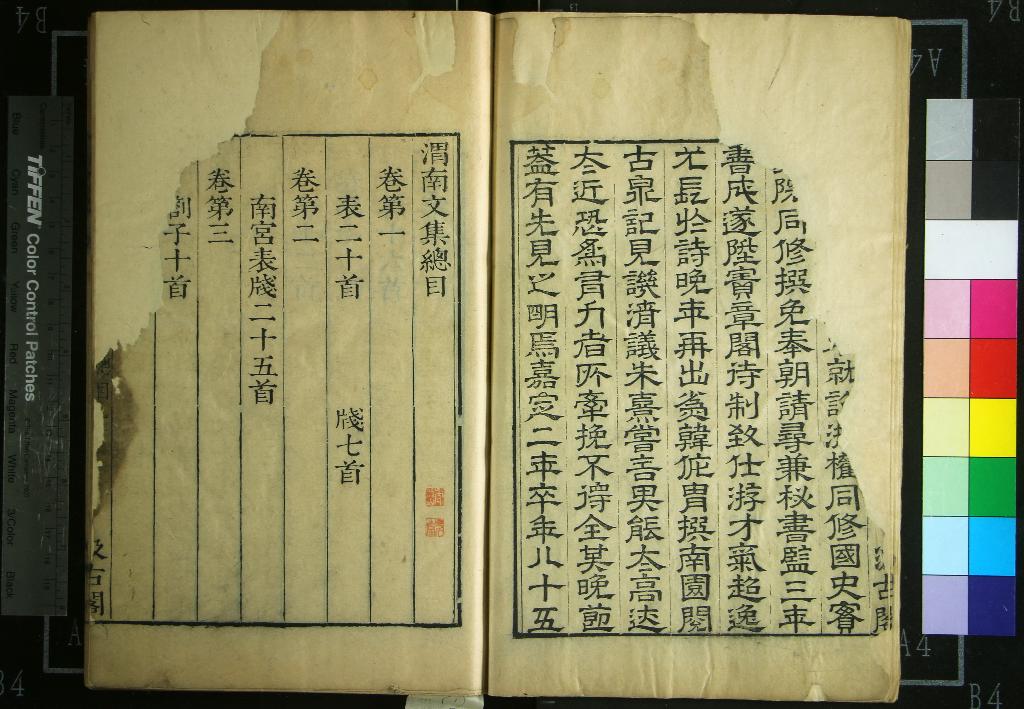 汲古閣
就詔游權同修國史實
院同修撰免奉朝請尋兼秘書監三年
書成遂陞寶章閣待制致仕游才氣超逸
尤長於詩晚年再出爲韓侂胄撰南園閱
古泉記見譏清議朱熹嘗言其能太高迹
太近恐爲有力者所牽挽不得全其晚節
蓋有先見之明焉嘉定二年卒年八十五
渭南文集總目
卷第一
表二十首 牋七首
卷第二
南宮表牋二十五首
卷第三
劄子十首
總目
汲古閣
TIFFEN Color Control Patches
Blue Cyan Green Yellow Red Magenta White 3/Color Black
B4
A4
A4
B4
A4
B4
A4
B4